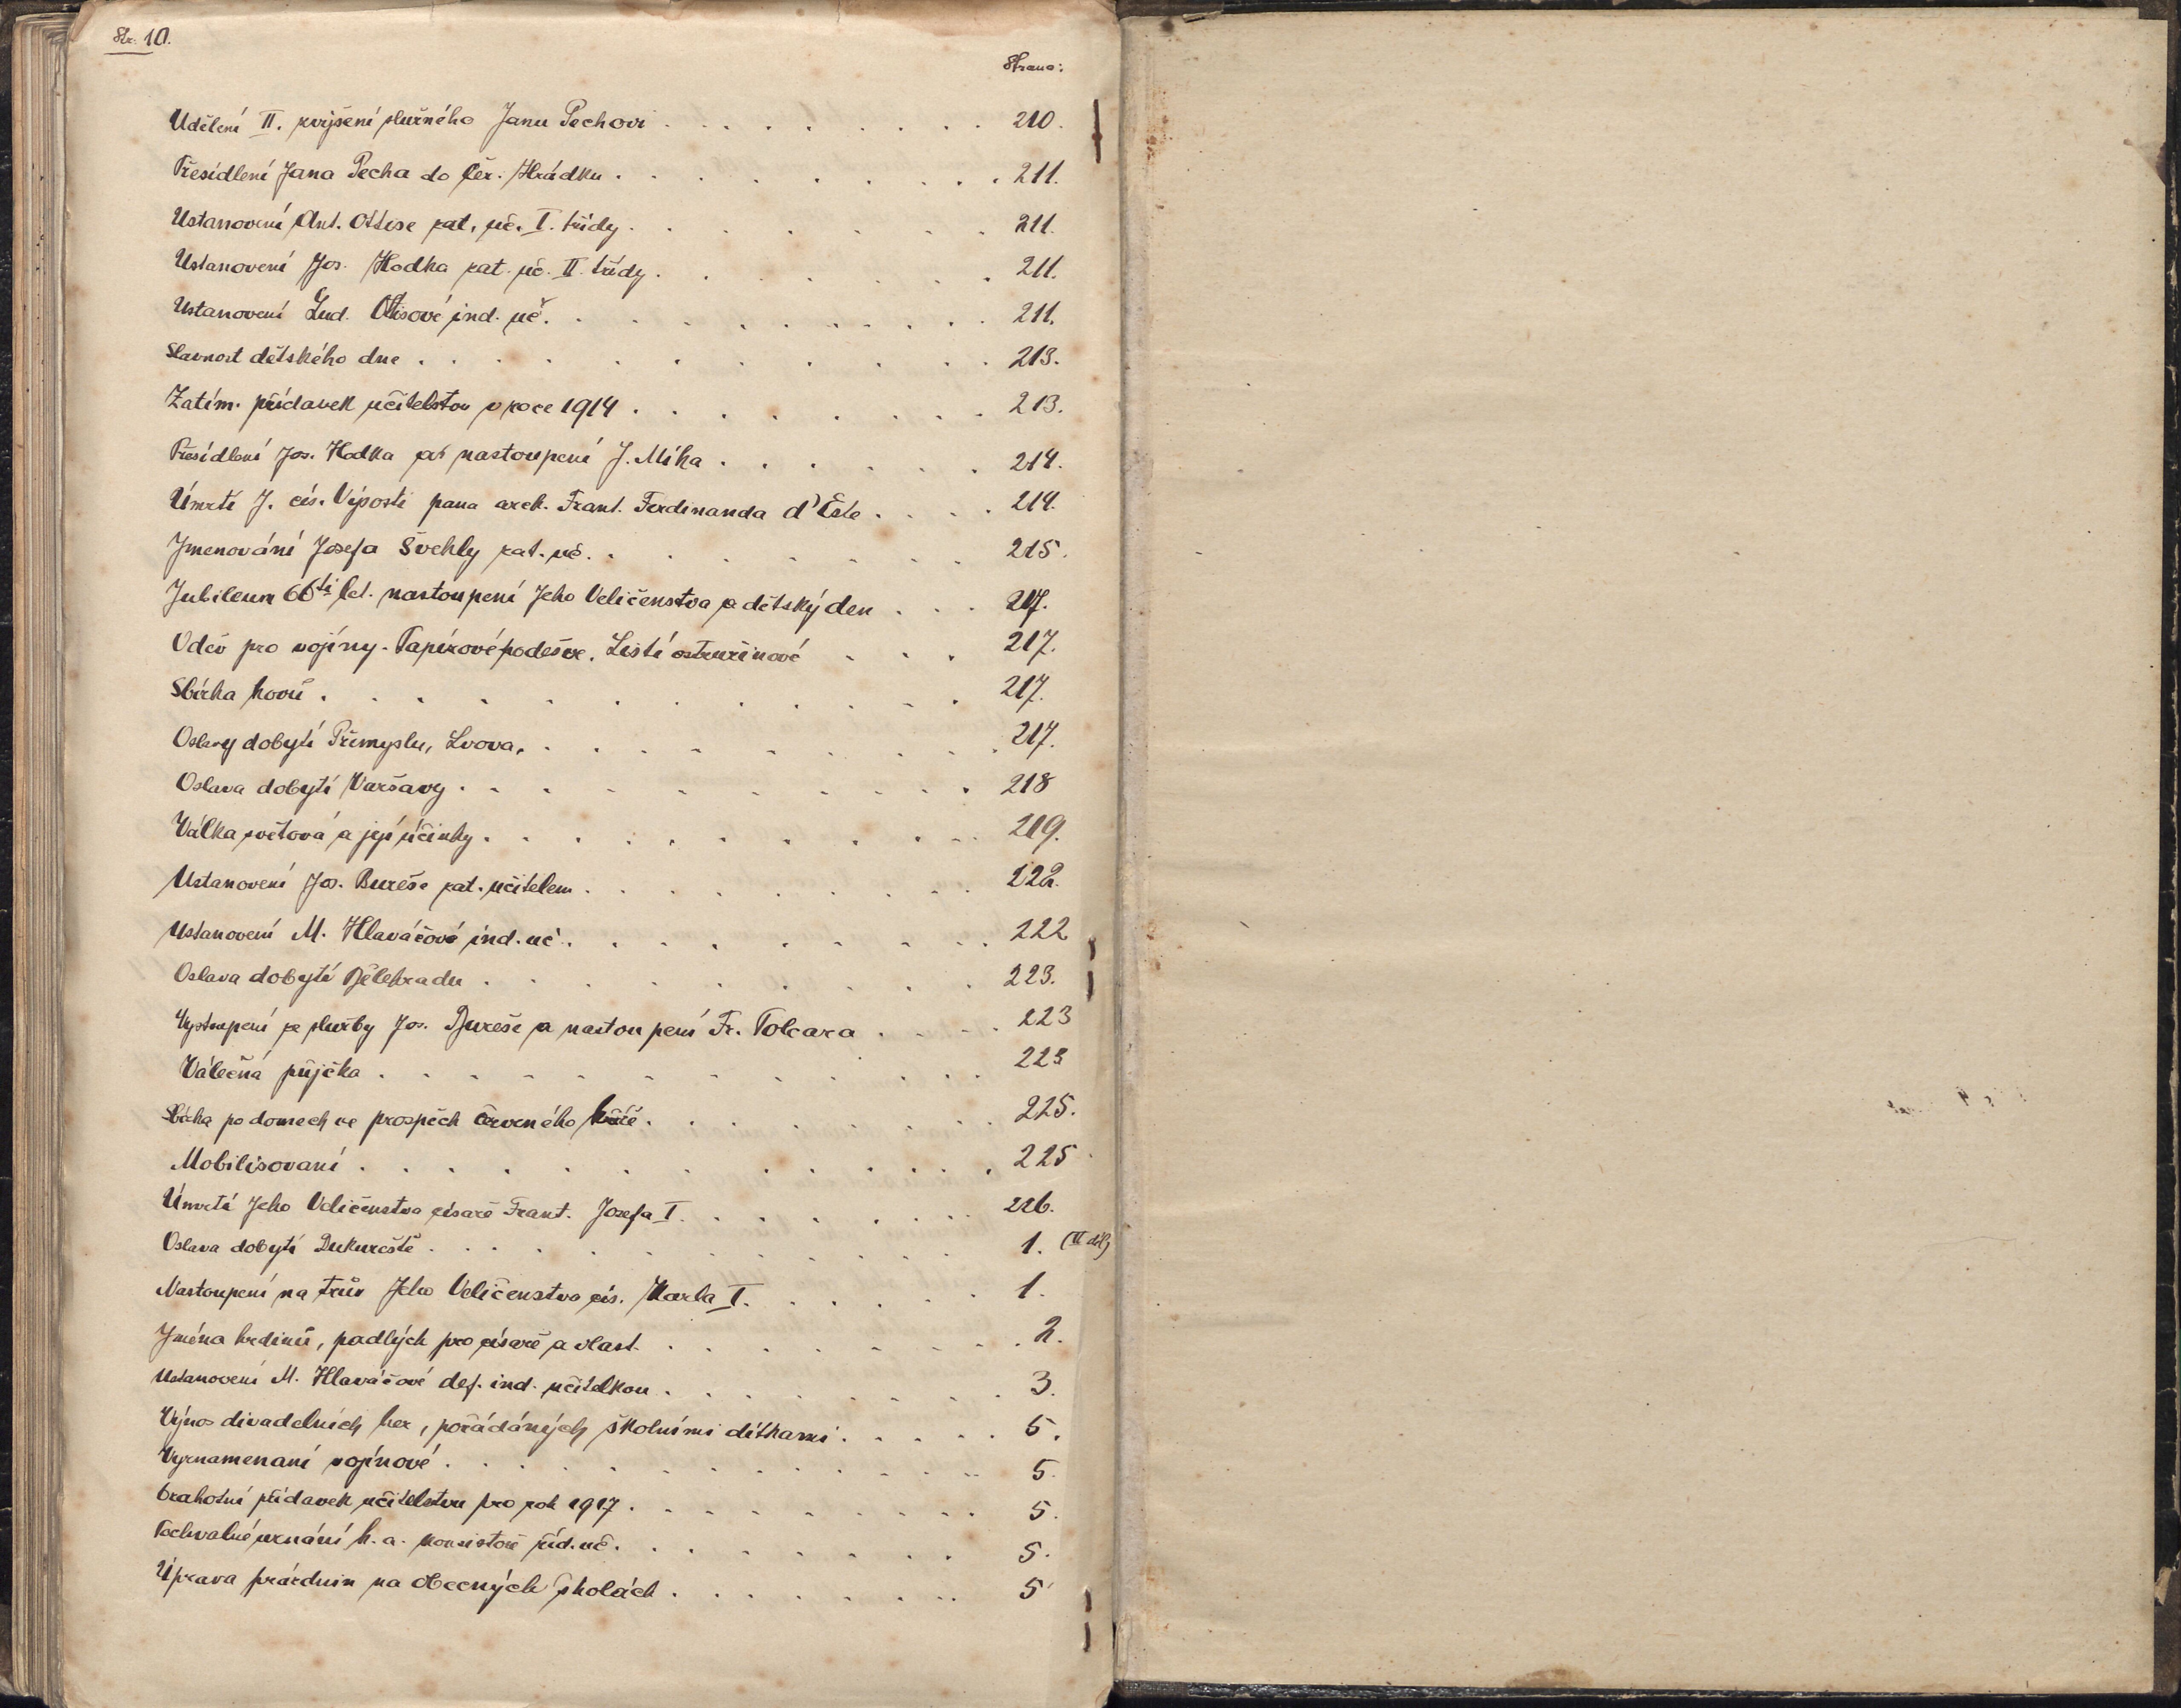 Str. 10.
Strana:
Udělení II. zvýšení služného Janu Pechovi 210.
Přesídlení Jana Pecha do Čer. Hrádku 211.
Ustanovení Ant. Ottise zat. uč. I. třídy 211.
Ustanovení Jos. Hodka zat. uč. II. třídy 211.
Ustanovení Lud. Ottisové ind. uč. 211.
Slavnost dětského dne 213.
Zatím. přídavek učitelstvu v roce 1914 213.
Přesídlení Jos. Hodka a nastoupení J. Míka 214.
Úmrtí J. cís. Výposti pana arck. Frant. Ferdinanda d'Este 214.
Jmenování Josefa Švehly zat. uč. 215.
Jubileum 66ti let. nastoupení Jeho Veličenstva a dětský den 217.
Oděv pro vojíny. Papírové podešve. Listí ostružinové 217.
Sbírka kovů 217.
Oslavy dobytí Přemyslu, Lvova, 217.
Oslava dobytí Varšavy 218
Válka světová a její účinky 219.
Ustanovení Jos. Bureše zat. učitelem 222.
Ustanovení M. Hlaváčové ind. uč. 222
Oslava dobytí Bělehradu 223.
Vystoupení ze služby Jos. Bureše a nastoupení Fr. Tolcara 223
Válečná půjčka 223
Sbírka po domech ve prospěch Červeného kříže. 225.
Mobilisovaní 225
Úmrtí Jeho Veličenstva císaře Frant. Josefa I. 226.
Oslava dobytí Bukureště 1. (II díl)
Nastoupení na trůn Jeho Veličenstva cís. Karla I. 1.
Jména hrdinů, padlých pro císaře a vlast. 2.
Ustanovení M. Hlaváčové def. ind. učitelkou 3.
Výnos divadelních her, pořádáných školními dítkami 5.
Vyznamenaní vojínové 5.
Drahotní přídavek učitelstvu pro rok 1917 5.
Pochvalné uznání k. a. konsistoře říd. uč. 5.
Úprava prázdnin na obecných školách 5